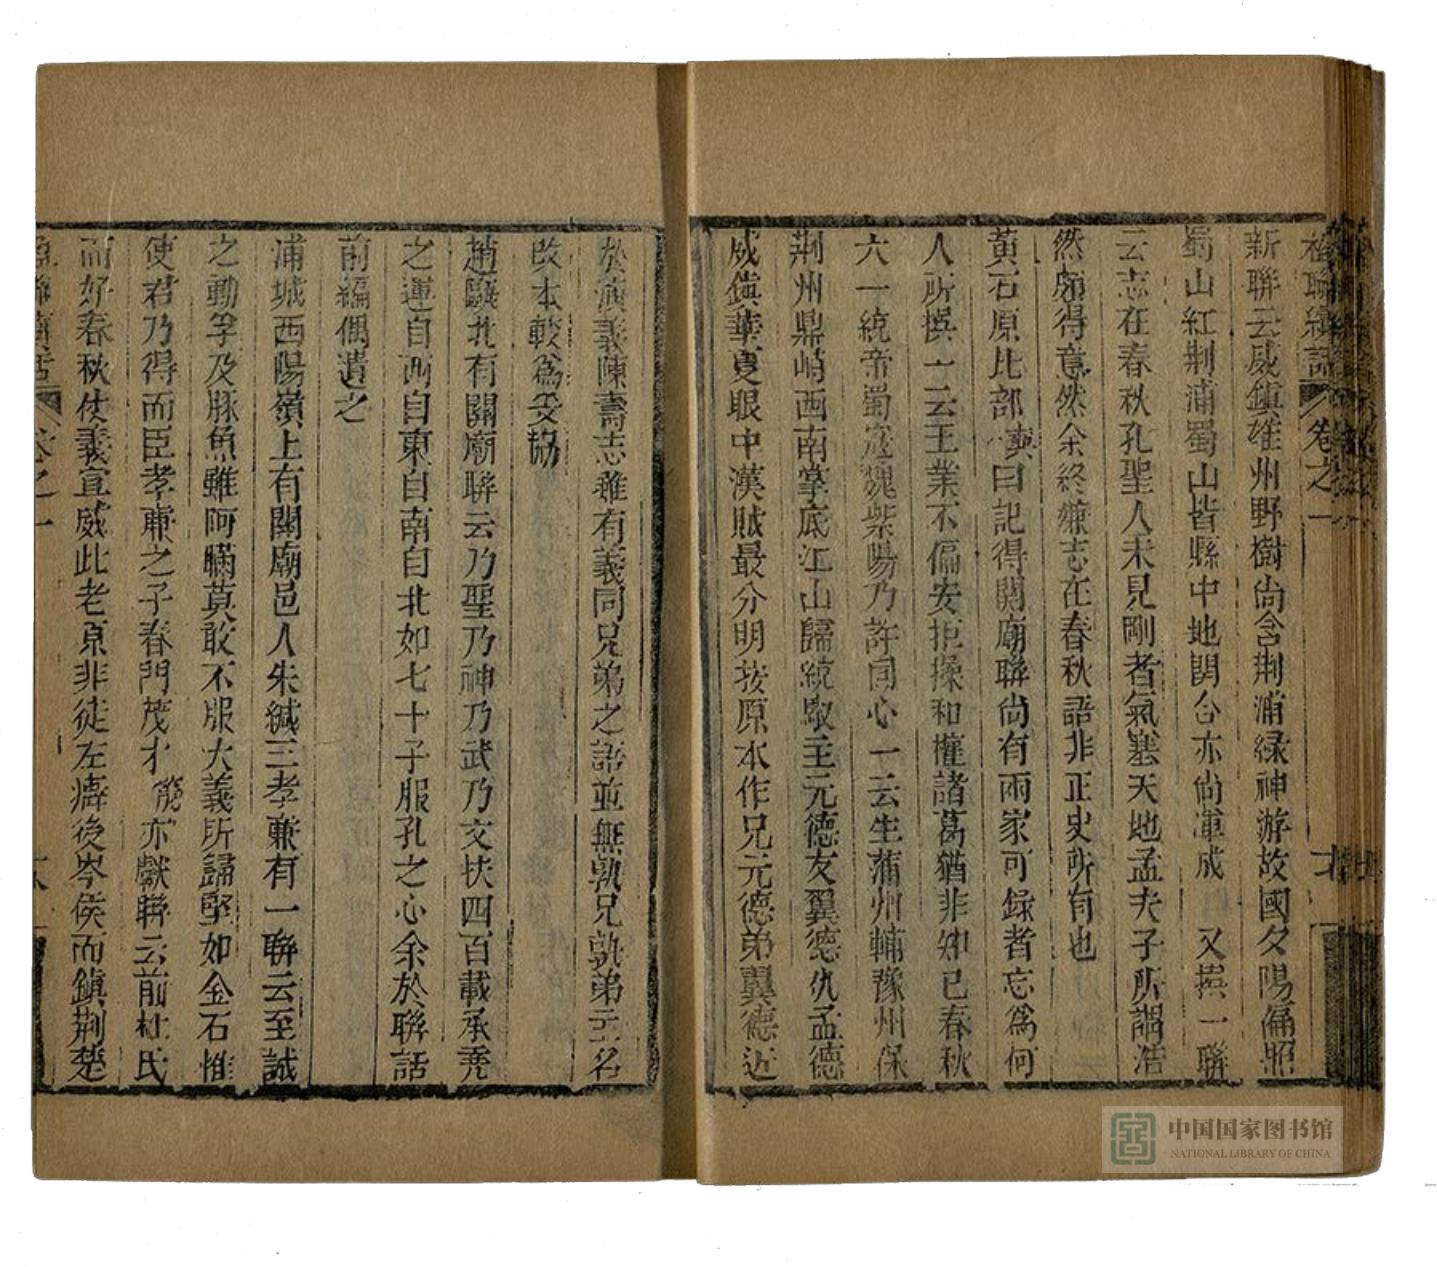 楹聯續話 卷之一
新聯云威鎮雄州野樹尙含荆浦綠神游故國夕陽偏照
蜀山紅荆浦蜀山皆縣中地閏合亦尙渾成 又撰一聯
云志在春秋孔聖人未見剛者氣塞天地孟夫子所謂浩
然頗得意然余終嫌志在春秋語非正史所有也
黃右原比部奭曰記得關廟聯尙有兩家可錄者忘爲何
人所撰一云王業不偏安拒操和權諸葛猶非知已春秋
六一統帝蜀寇魏紫陽乃許同心一云生蒲州輔豫州保
荆州鼎峙西南掌底江山歸統馭主元德友翼德仇孟德
威鎮華夏眼中漢賊最分明按原本作兄元德弟翼德近
於演義陳壽志雖有義同兄弟之語並無孰兄孰弟元名
改本較爲妥協
趙驥北有關廟聯云乃聖乃神乃武乃文扶四百載承堯
之運自西自東自南自北如七十子服孔之心余於聯話
前編偶遺之
浦城西陽嶺上有關廟邑人朱緘三孝兼有一聯云至誠
之動孚及豚魚雖阿瞞莫敢不服大義所歸堅如金石惟
使君乃得而臣孝兼之子春門茂才 亦獻聯云前杜氏
而好春秋仗義宣威此老原非徒左癖後岑侯而鎮荆楚
卷之一